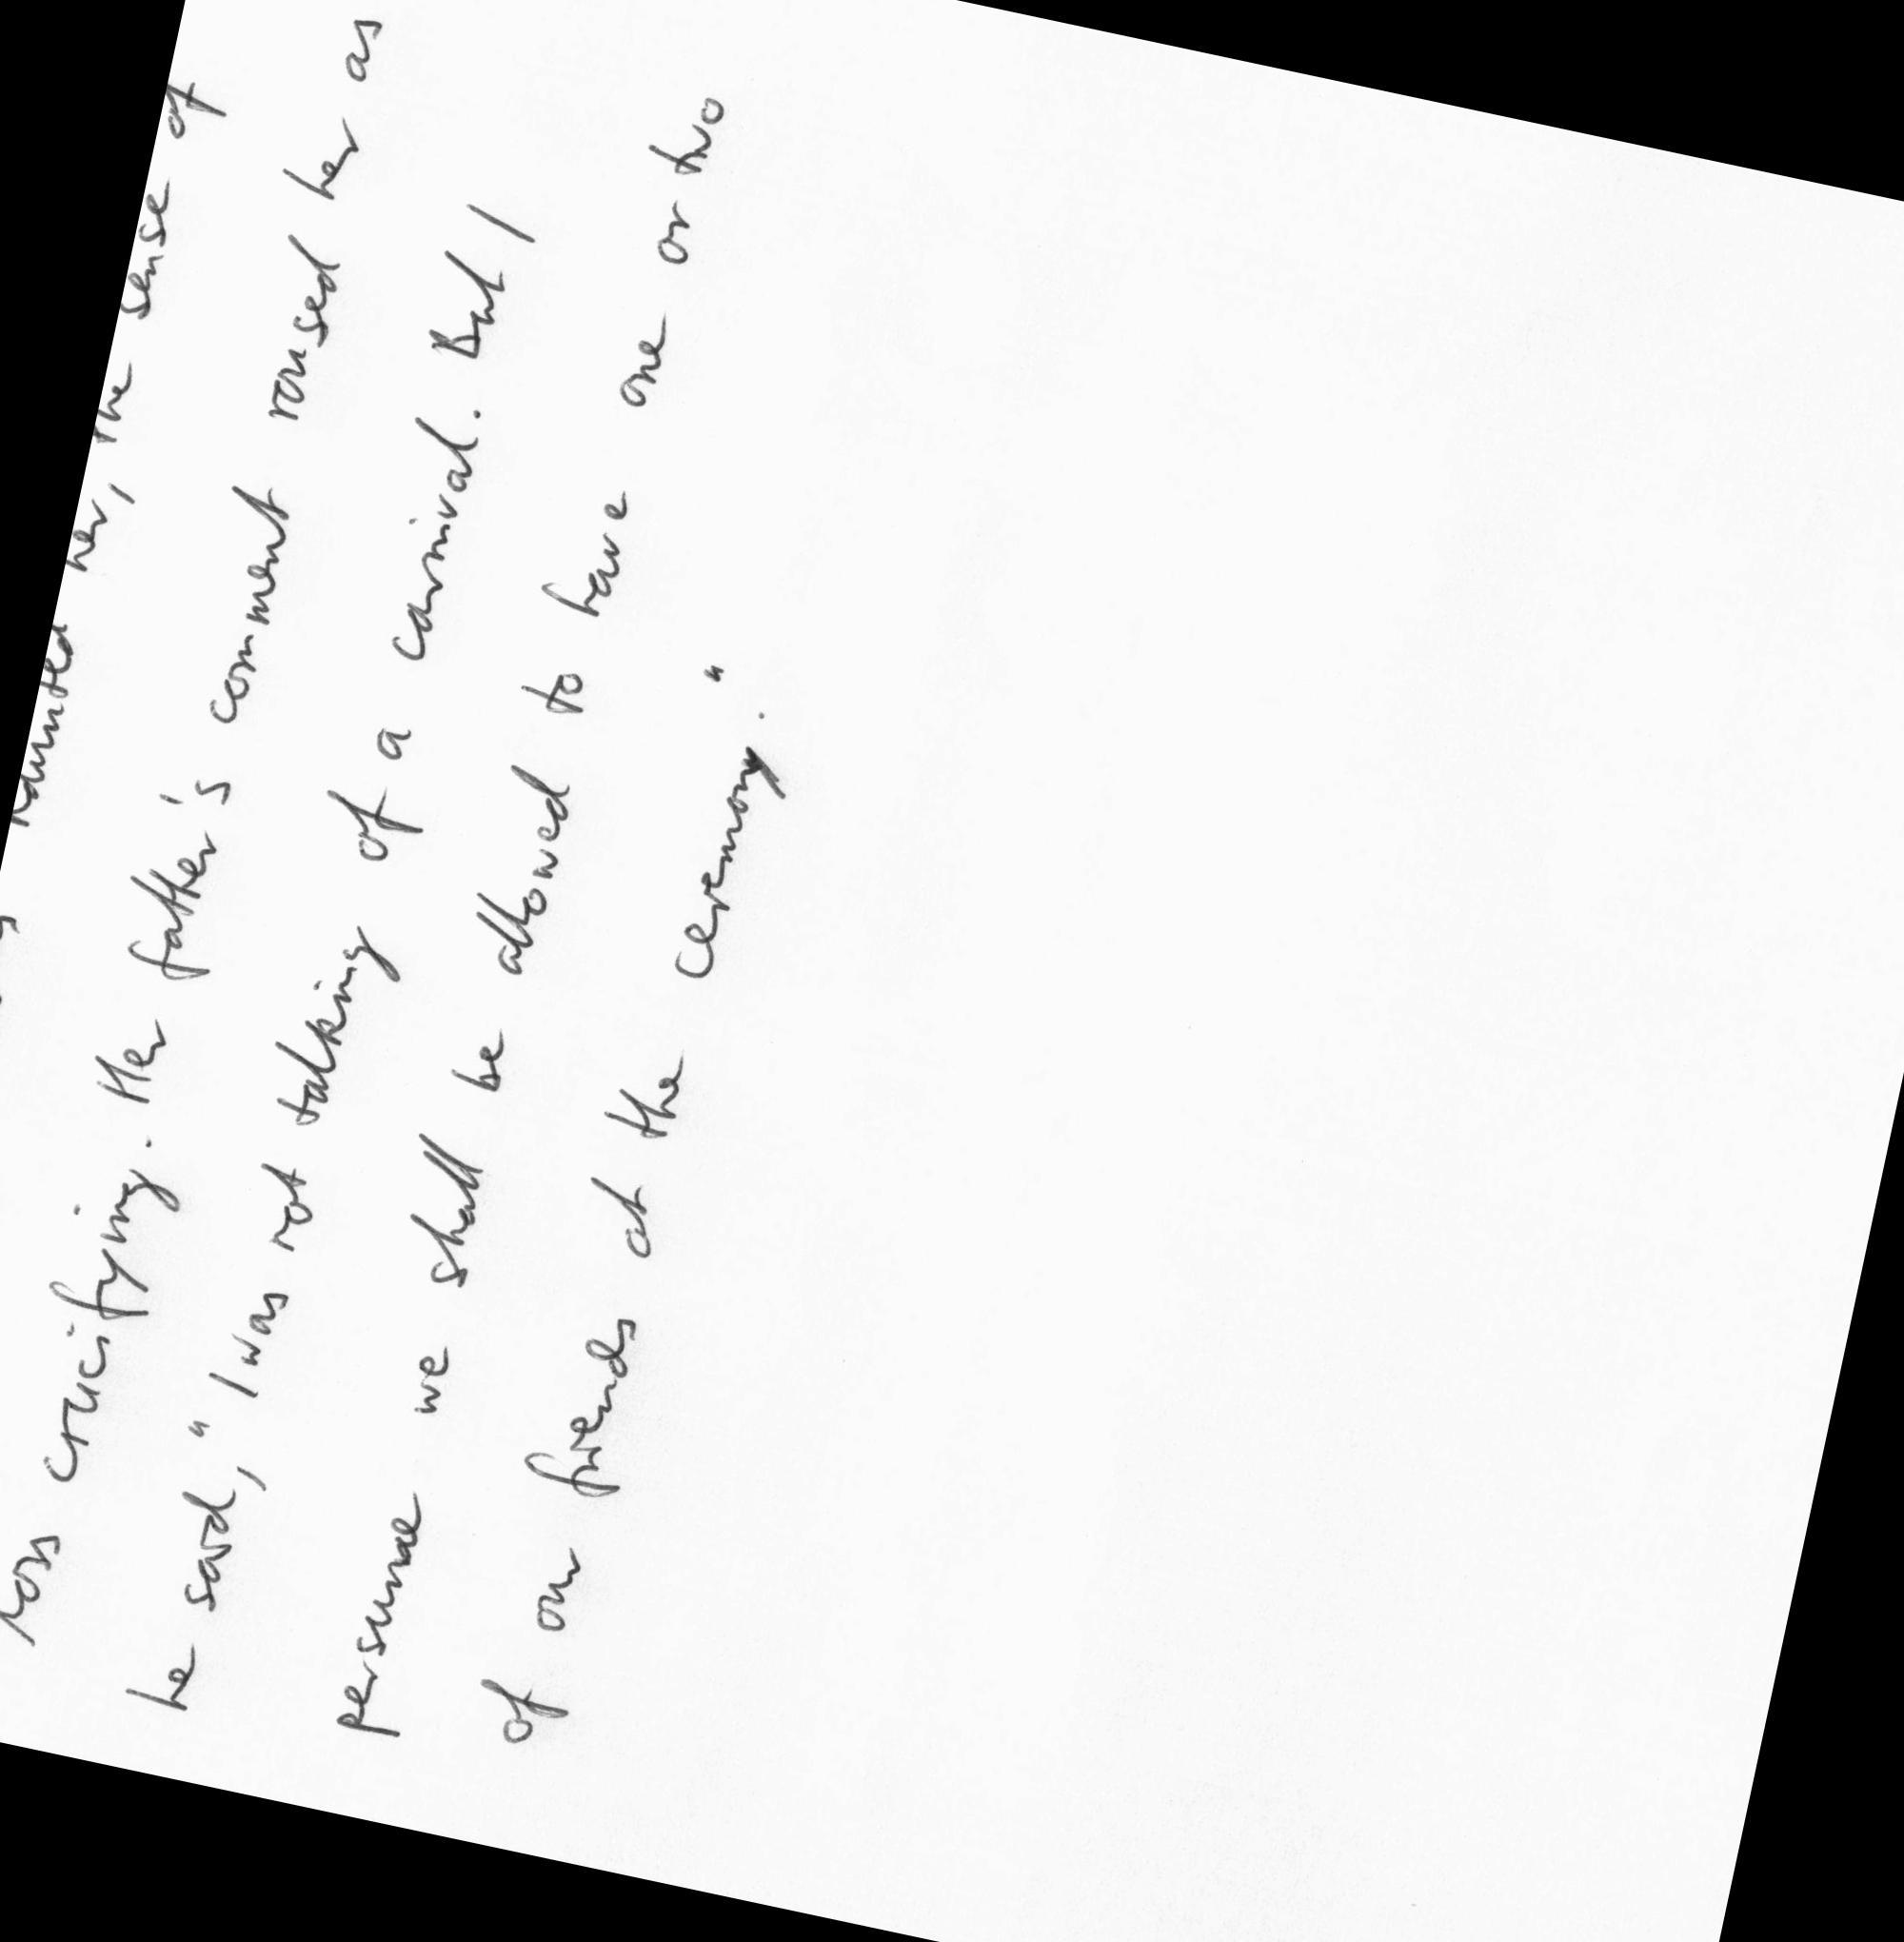 haunted her, the sense of
loss crucifying. Her father's comment roused her as
he said, "I was not talking of a carnival. But I
persume we shall be allowed to have one or two
of our friends at the ceremony."